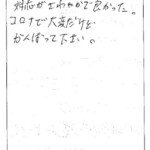 対応がさわやかで良かった。
コロナで大変だけど
がんばって下さい。